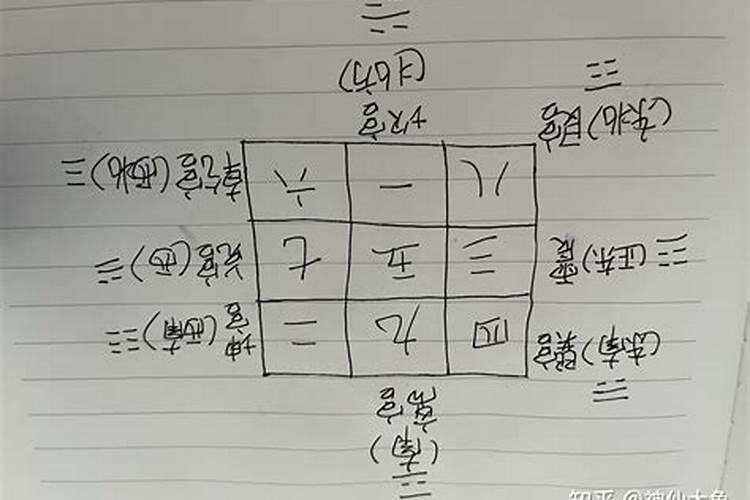 ☲
(南)
离宫
☴
(东南)巽宫 四 九 二 坤宫(西南)☷
☳(正东)震 三 五 七 兑宫(西)☱
(东北)艮宫 八 一 六 乾宫(西北)☰
☶
坎宫
(北方)
☵
知乎